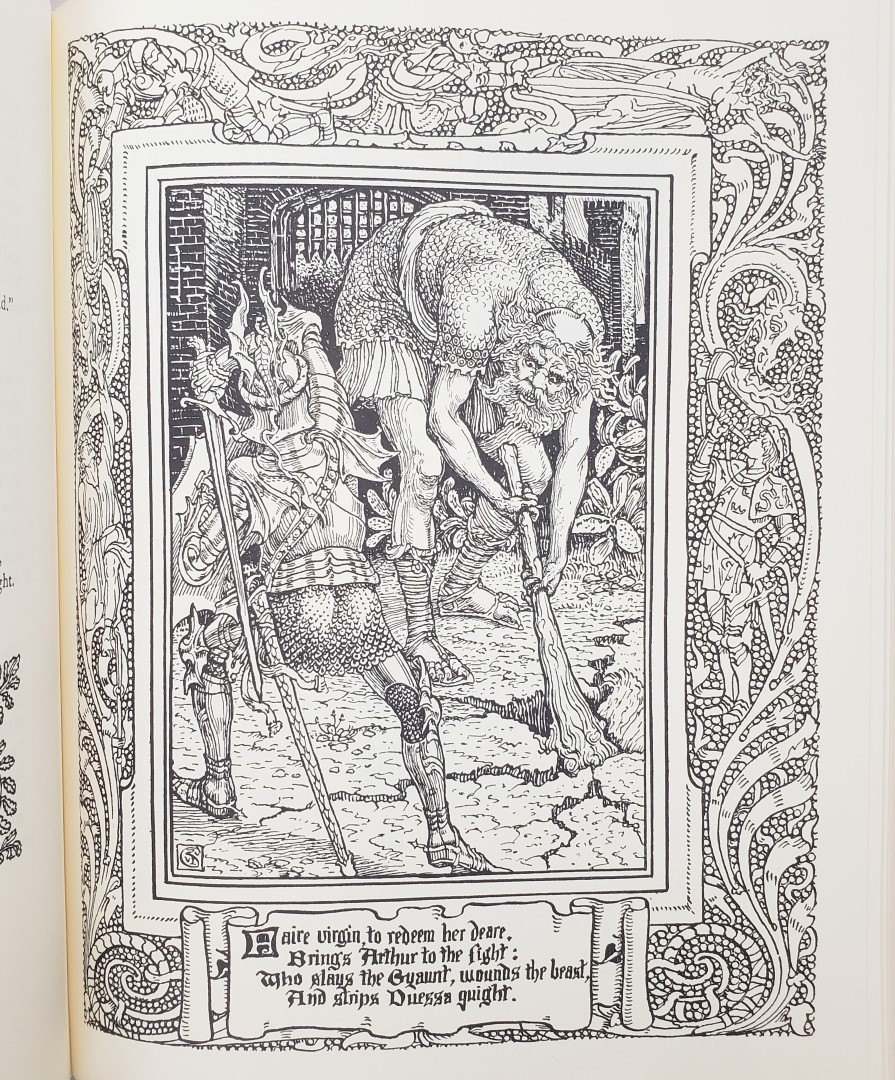 d."
ght.
Faire virgin, to redeem her deare,
Brings Arthur to the fight:
Who slays the Gyaunt, wounds the beast,
And strips Duessa quight.